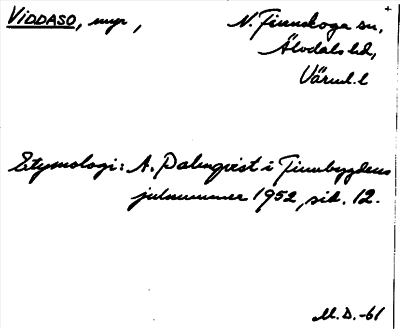 VIDDASO, myr, N. Finnskoga sn,
Älvdals hd,
Värml. l
Etymologi: A. Palmqvist i Finnbygdens
julnummer 1952, sid. 12.
M.D.-61